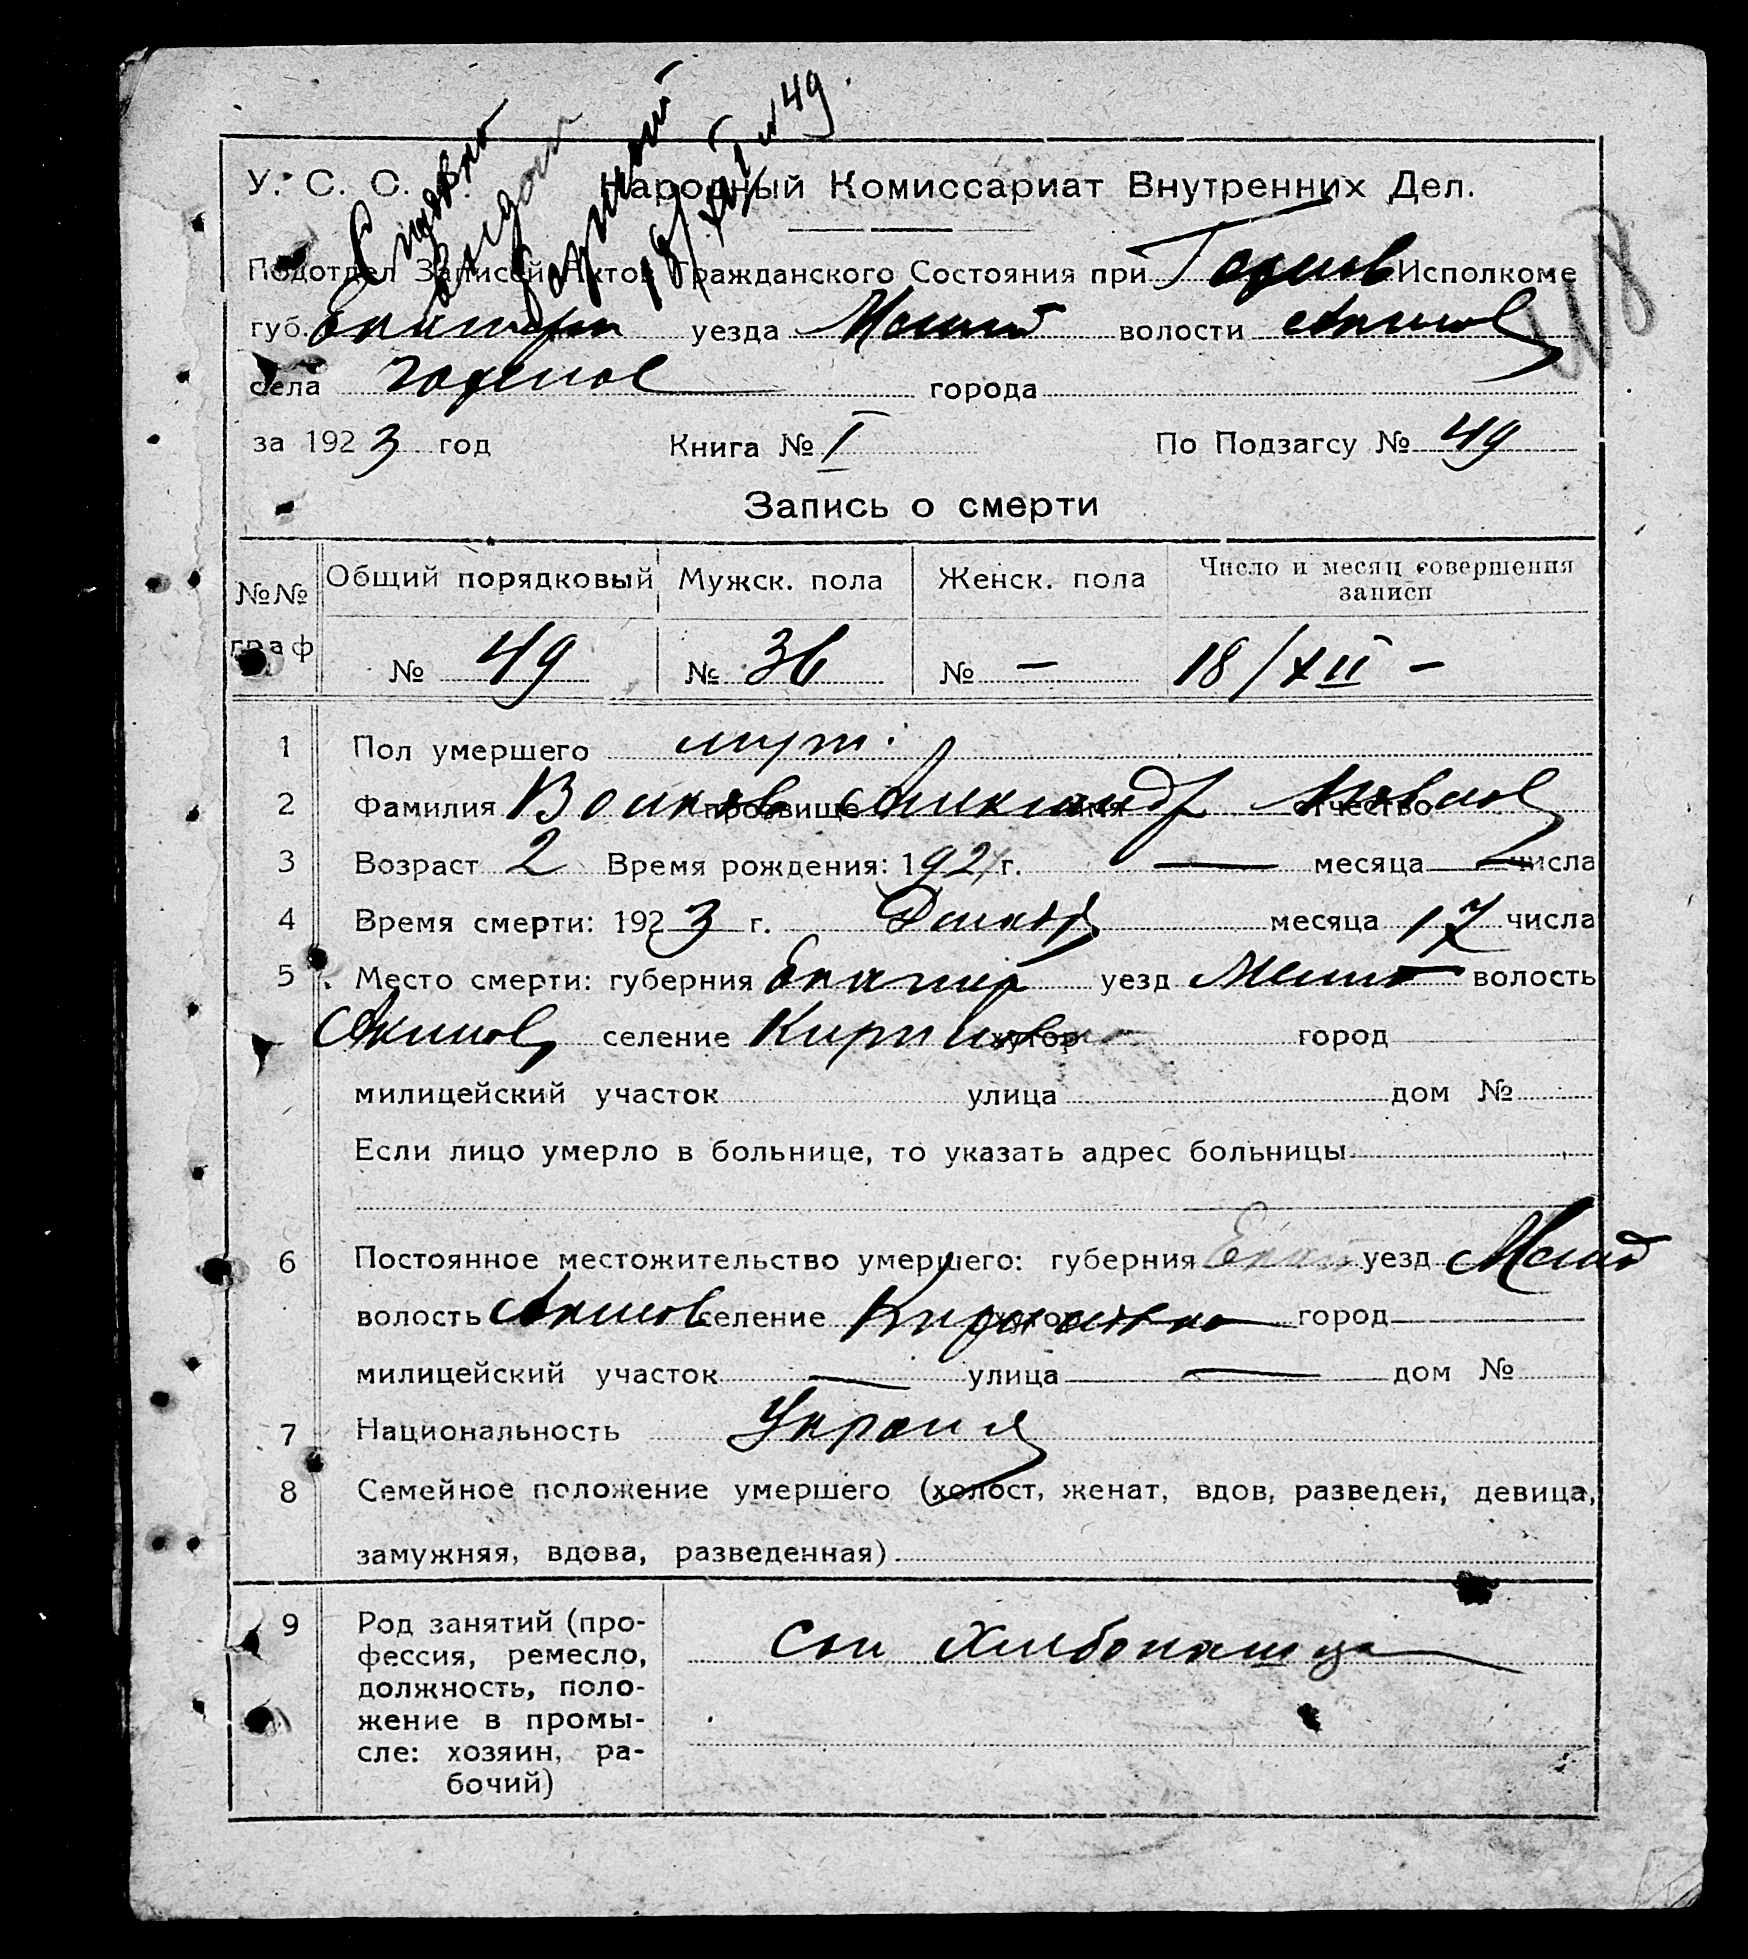 У. С. С. Народный Комиссариат Внутренних Дел.
Подотдел Записей Актов Гражданского Состояния при Исполкоме
губ. уезда Мелит волости Акимов
села города
за 1923 год Книга № I По Подзагсу № 49
Запись о смерти
№№ граф Общий порядковый Мужск. пола Женск. пола Число и месяц совершения записи
№ 49 № 36 № — 18/XII —
1 Пол умершего мужт.
2 Фамилия Волков прозвище Александр имя Павлов отчество
3 Возраст 2 Время рождения: 1921 г. — месяца — числа
4 Время смерти: 1923 г. Декаб месяца 17 числа
5 Место смерти: губерния Екатер уезд Мелит волость
Акимов селение хутор город
милицейский участок улица дом №
Если лицо умерло в больнице, то указать адрес больницы
6 Постоянное местожительство умершего: губерния Екат уезд Мелит
волость Акимов селение хутор город
милицейский участок — улица — дом №
7 Национальность Украин
8 Семейное положение умершего (холост, женат, вдов, разведен, девица,
замужняя, вдова, разведенная)
9 Род занятий (про-
фессия, ремесло,
должность, поло-
жение в промы-
сле: хозяин, ра-
бочий)
Сын Хлебопашца